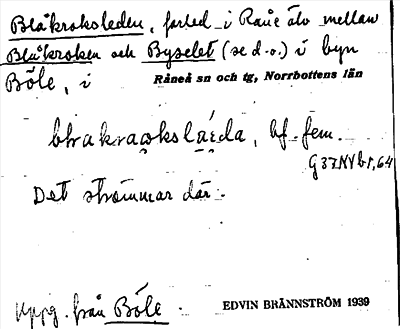 Blåkroksleden, farled i Råne älv mellan
Blåkroken och Byselet (se d.o.) i byn
Böle, i Råneå sn och tg, Norrbottens län
bf. fem.
Det strömmar där.
Uppg. från Böle. EDVIN BRÄNNSTRÖM 1939